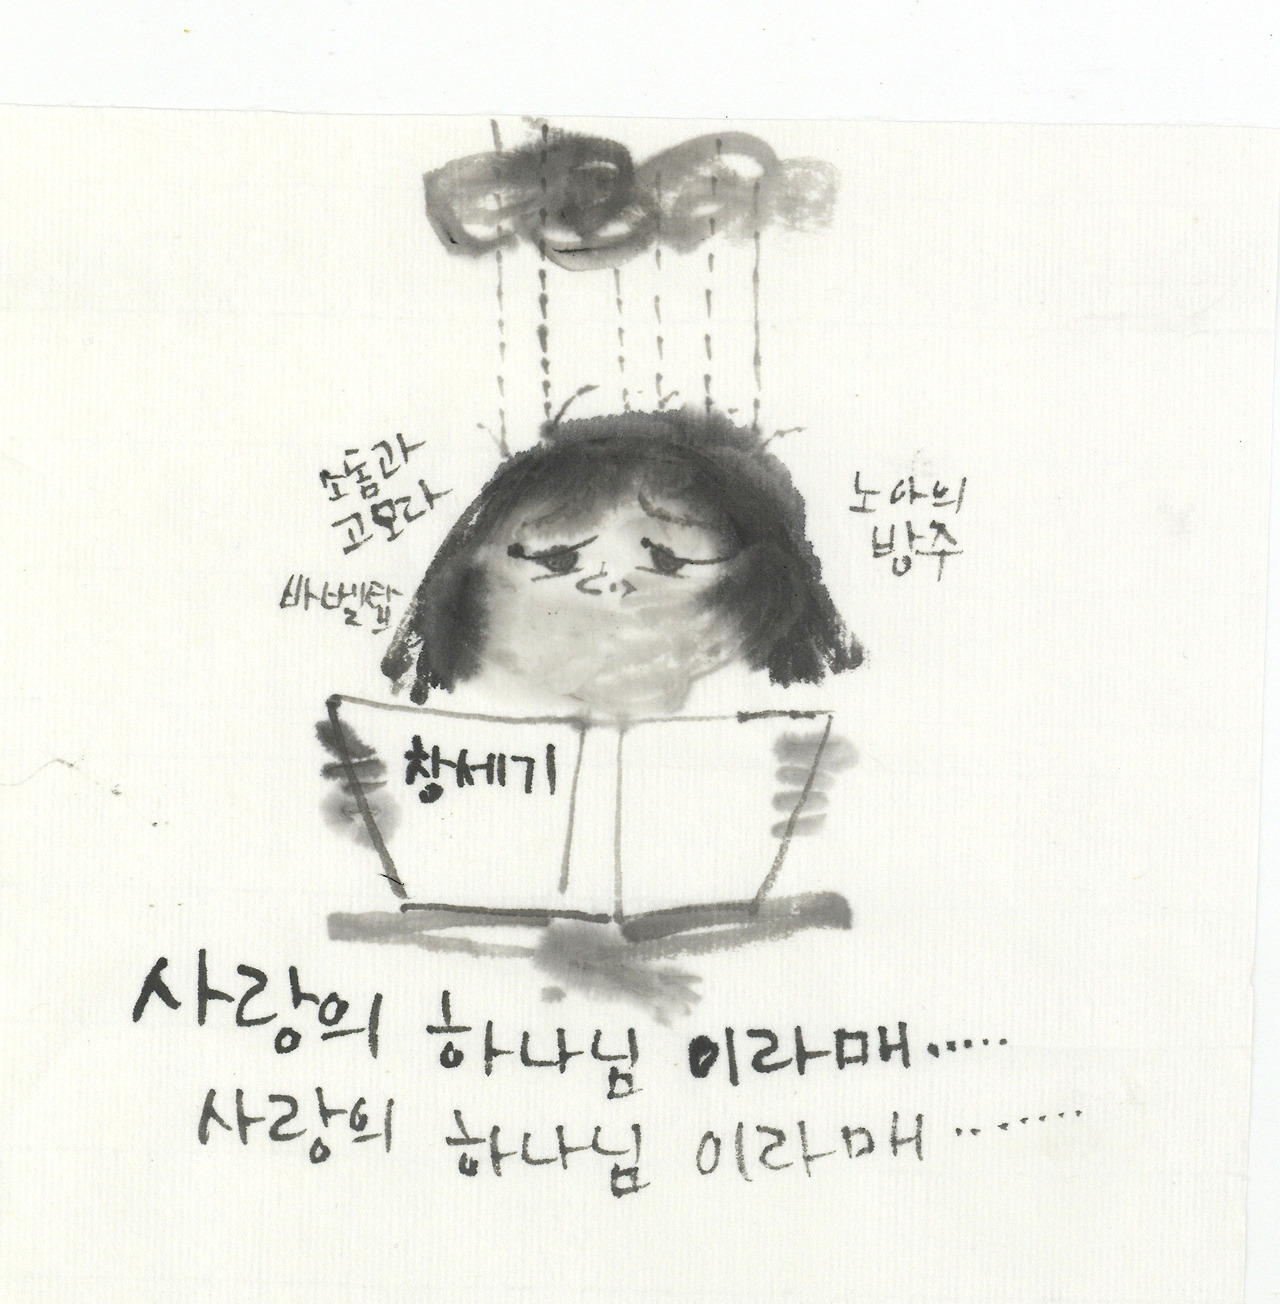 소돔과
고모라
바벨탑
노아의
방주
창세기
사랑의 하나님 이라매.....
사랑의 하나님 이라매.......